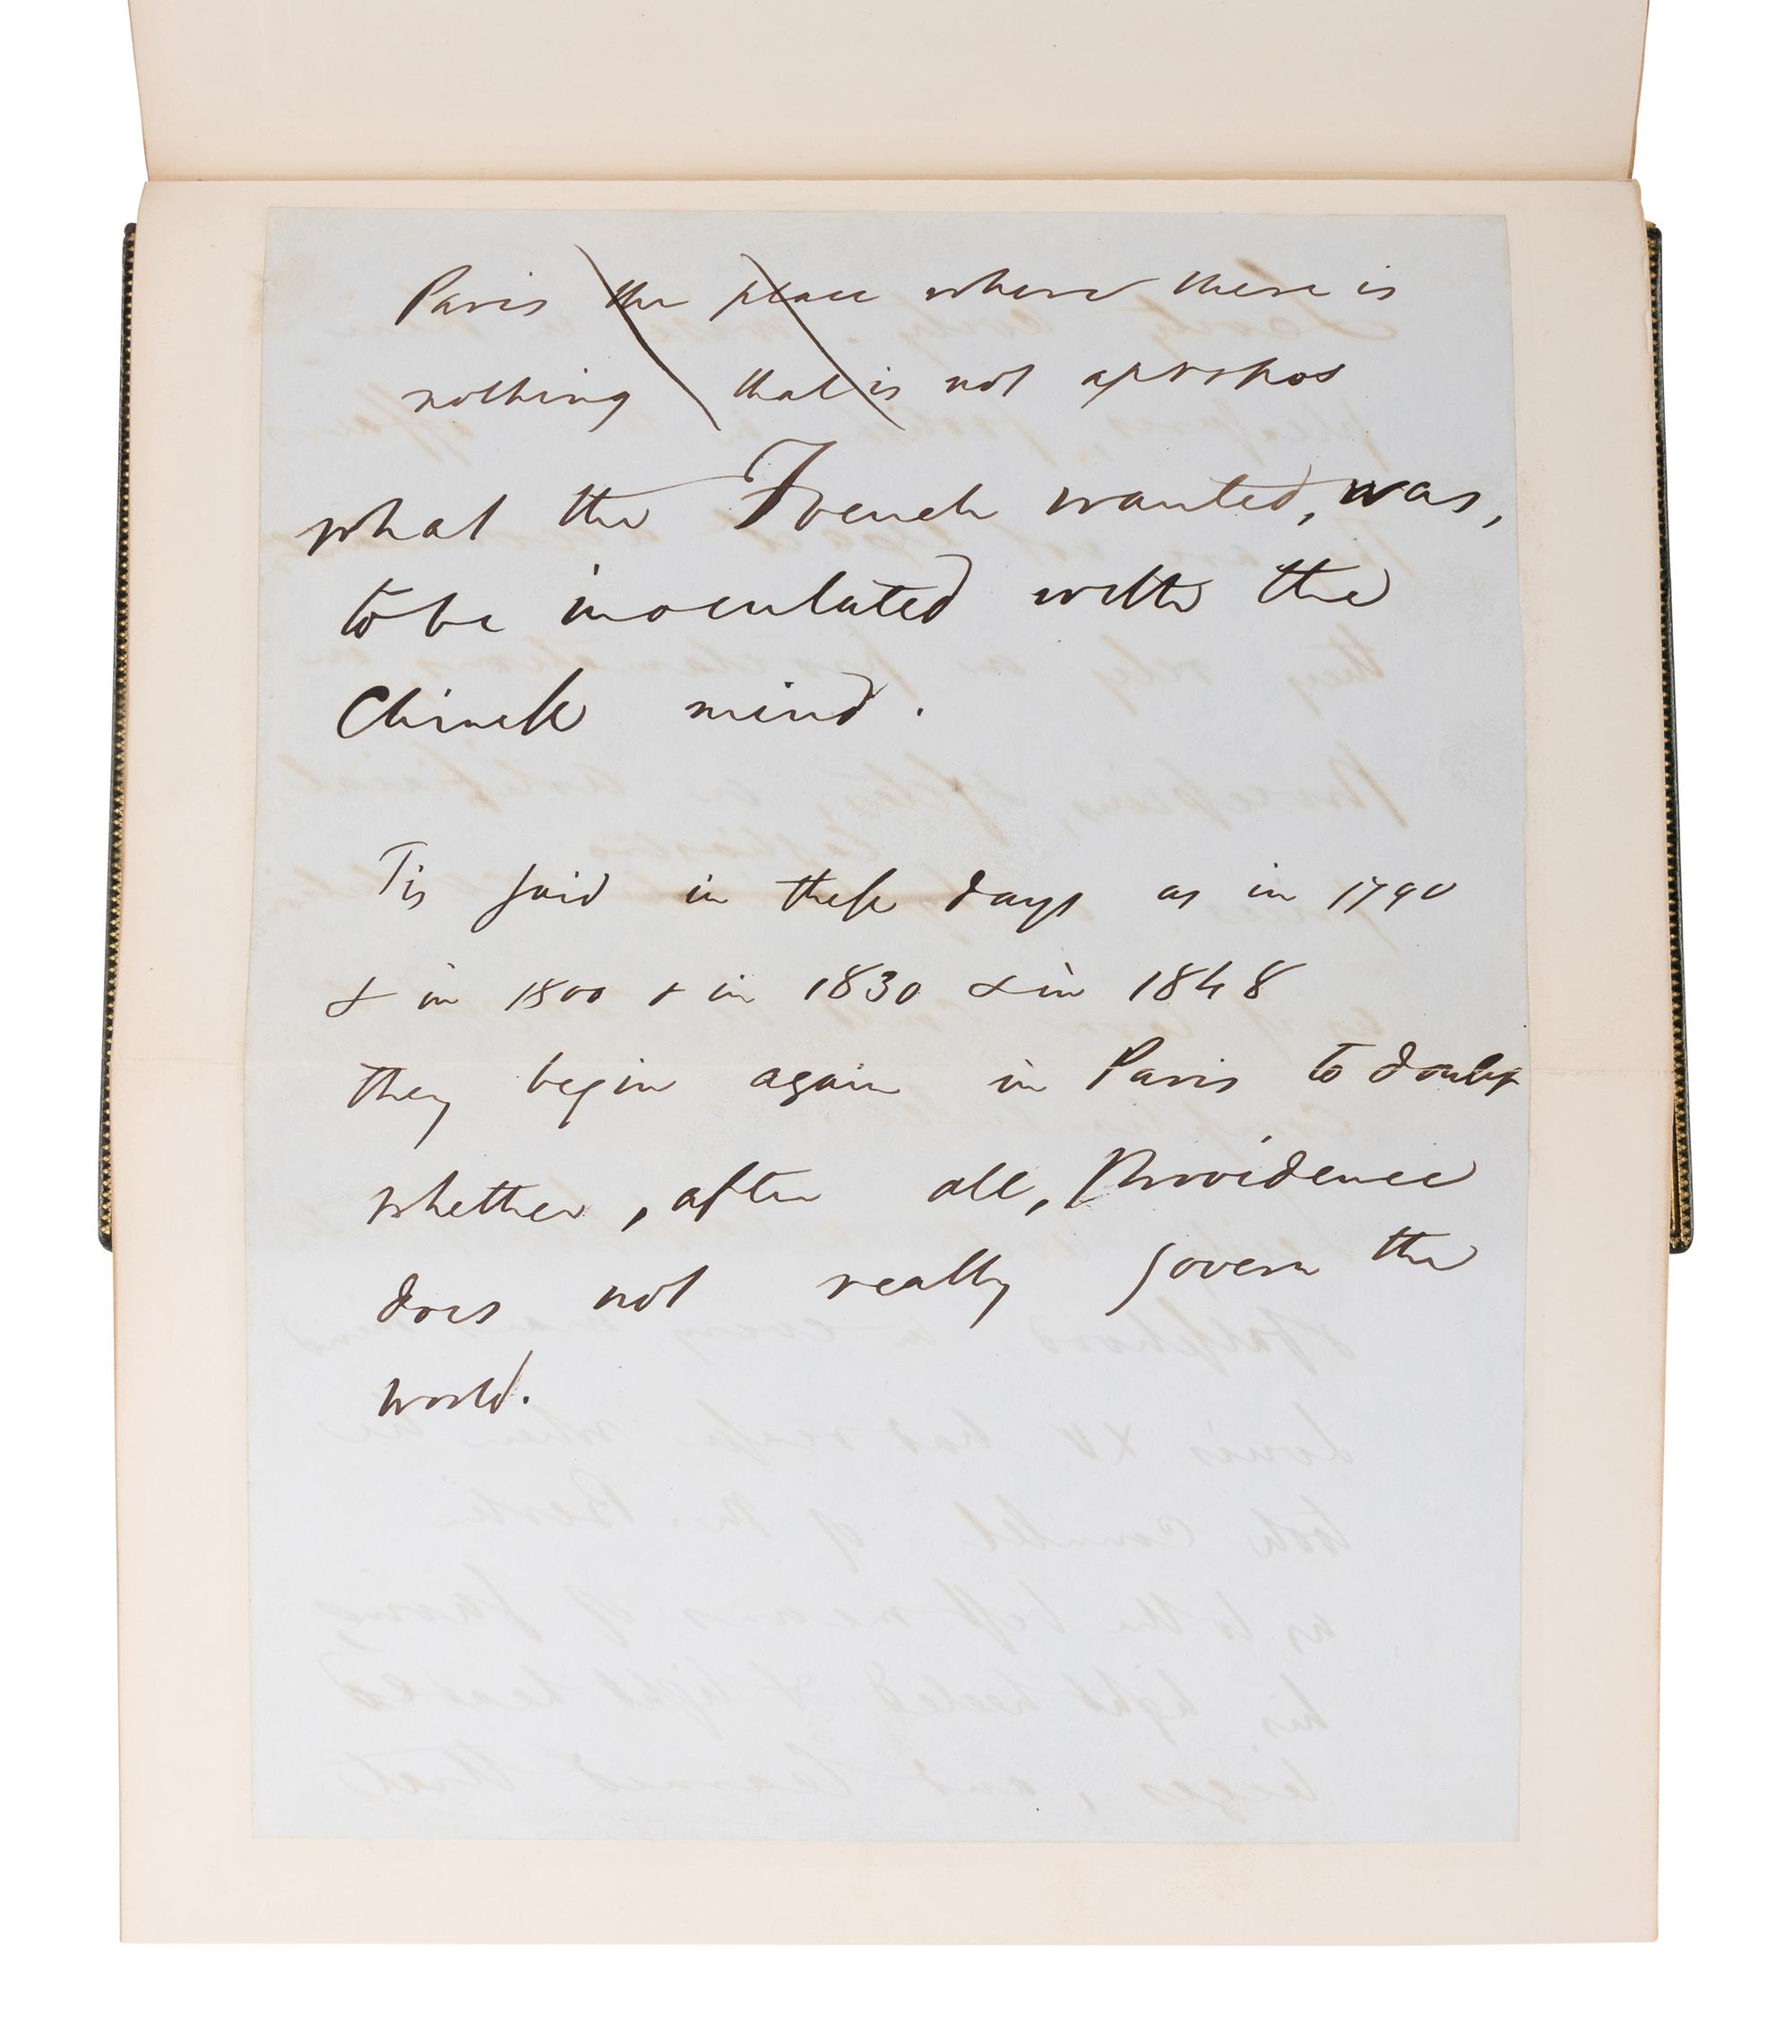 Paris the place where there is
nothing that is not apropos
what the French wanted, was,
to be inoculated with the
Chinese mind.
Tis said in these days as in 1790
& in 1800 & in 1830 & in 1848
they begin again in Paris to doubt
whether, after all, Providence
does not really govern the
world.